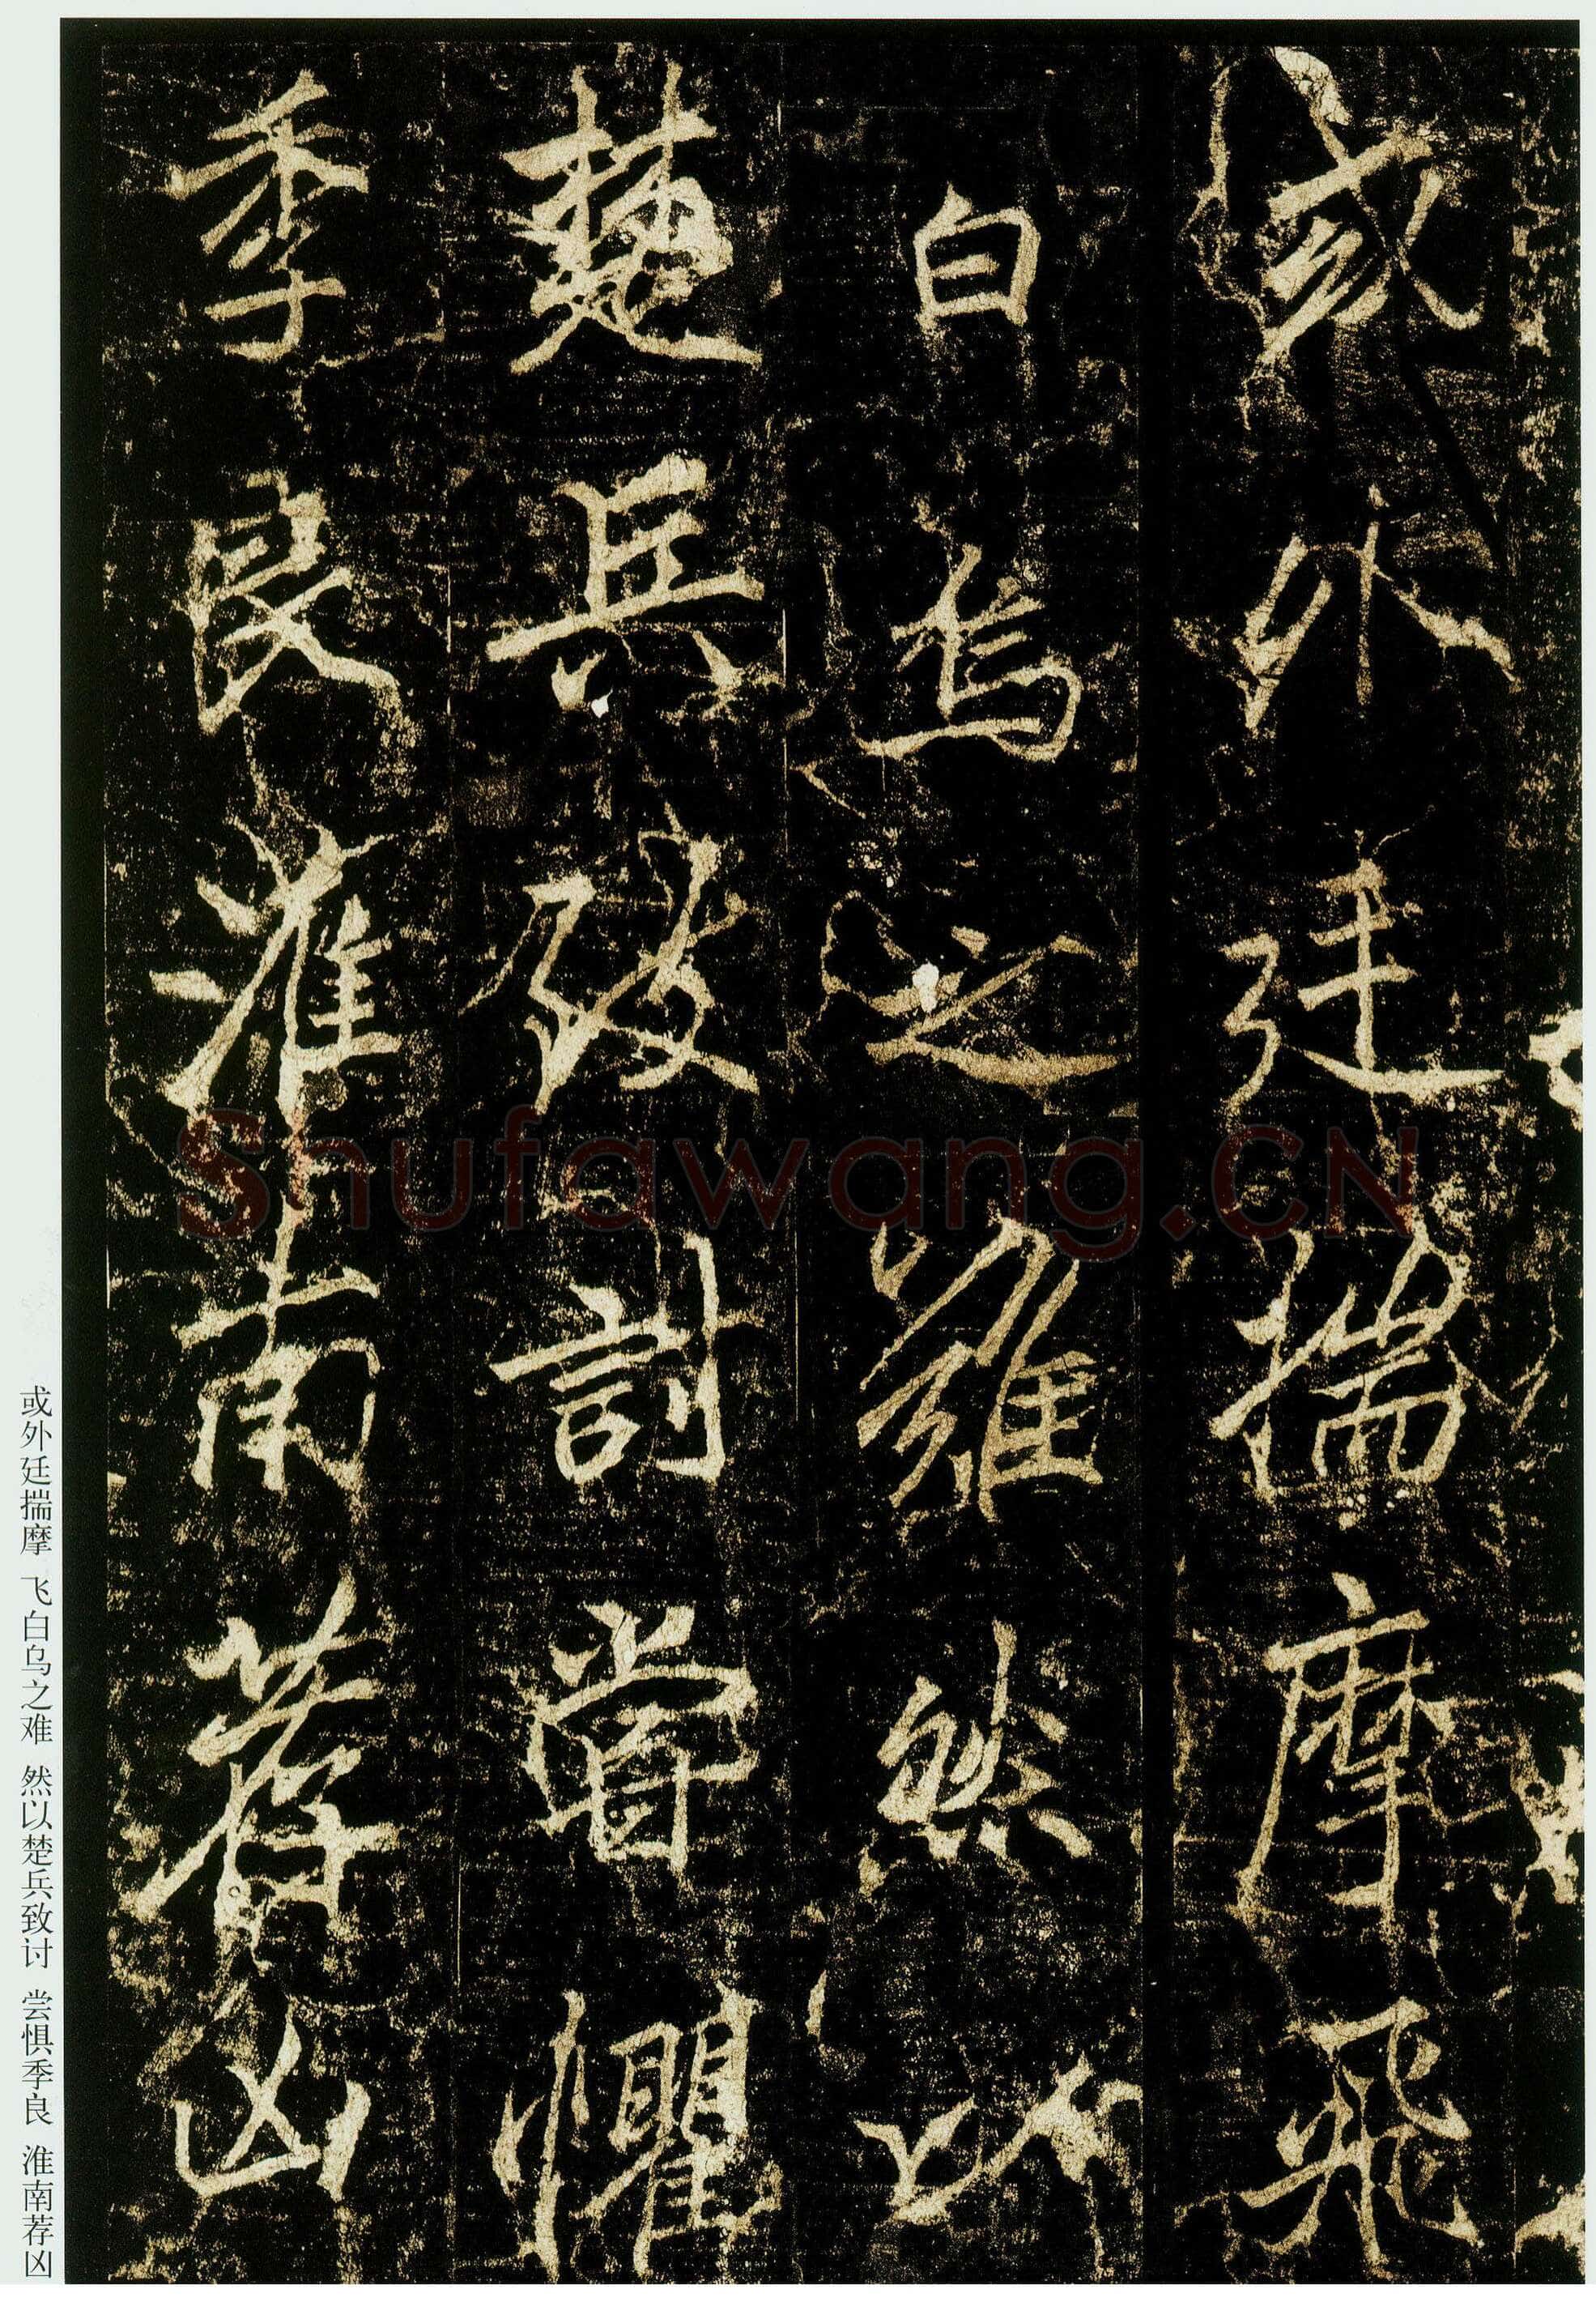 或外廷揣摩飛
白烏之難然以
楚兵致討嘗懼
季良淮南荐凶
或外廷揣摩 飞白乌之难 然以楚兵致讨 尝惧季良 淮南荐凶
Shufawang.CN